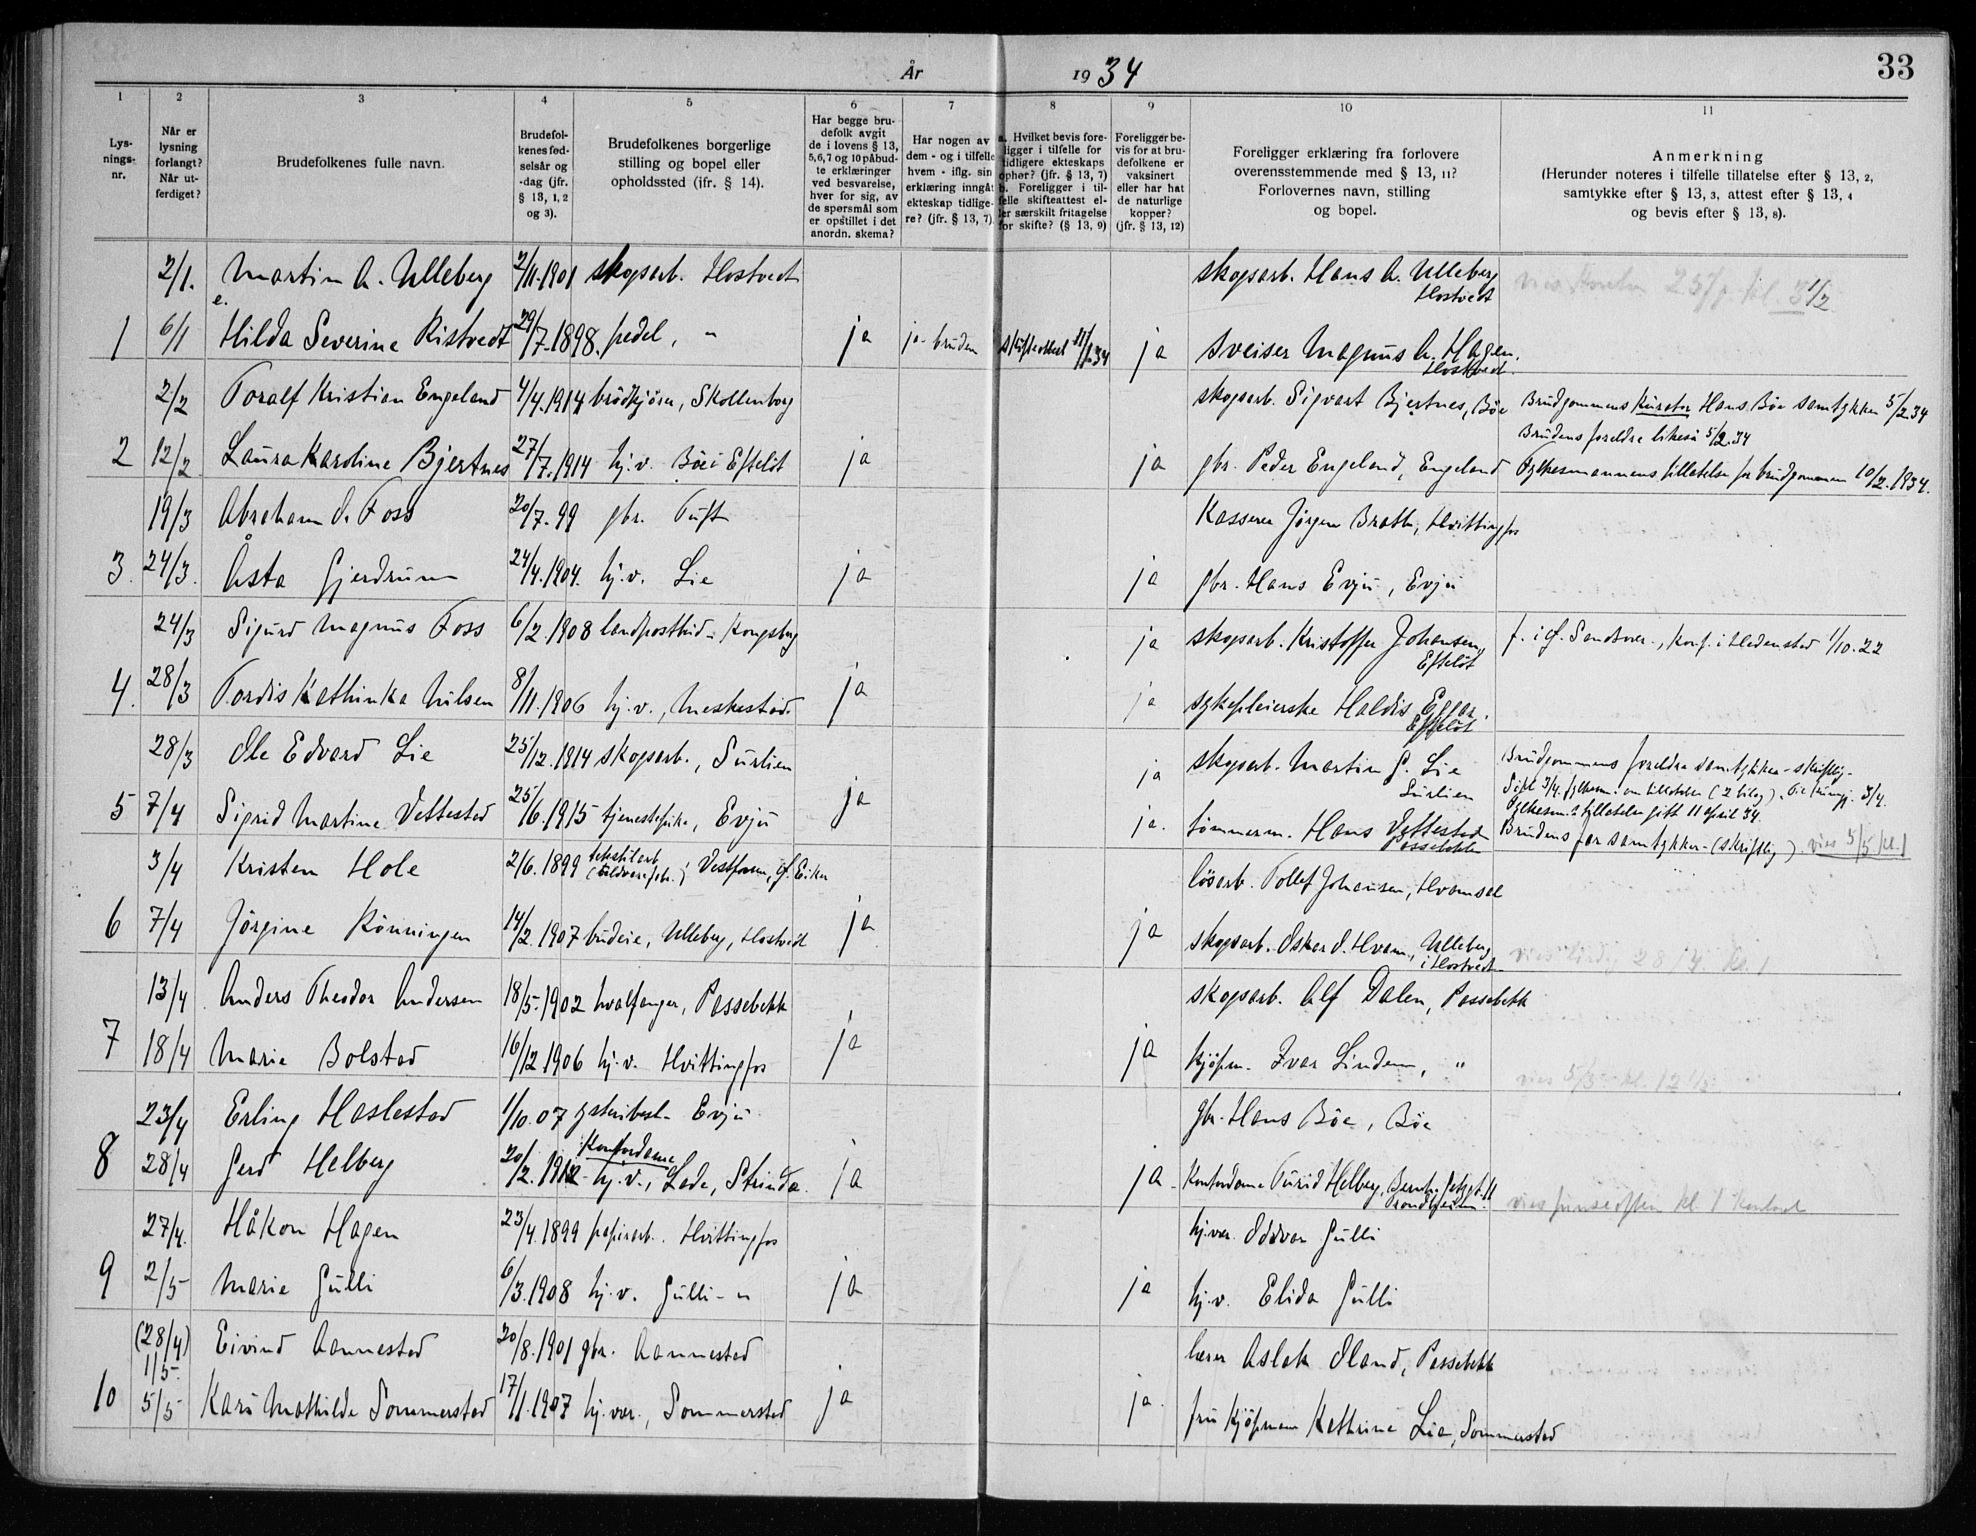 År 1934
33
1 2 3 4 5 6 7 8 9 10 11
Lysnings-nr.
Når er lysning forlangt? Når utferdiget?
Brudefolkenes fulle navn.
Brudefolkenes fødselsår og -dag (jfr. § 13, 1, 2 og 3).
Brudefolkenes borgerlige stilling og bopel eller opholdssted (jfr. § 14).
Har begge brudefolk avgit de i lovens § 13, 5, 6, 7 og 10 påbudte erklæringer ved besvarelse, hver for sig, av de spørsmål som er opstillet i det anordn. skema?
Har nogen av dem - og i tilfelle hvem - iflg. sin erklæring inngåt ekteskap tidligere? (jfr. § 13, 7)
a. Hvilket bevis foreligger i tilfelle for tidligere ekteskaps ophør? (jfr. § 13, 7) b. Foreligger i tilfelle skifteattest eller særskilt fritagelse for skifte? (§ 13, 9)
Foreligger bevis for at brudefolkene er vaksinert eller har hat de naturlige kopper? (jfr. § 13, 12)
Foreligger erklæring fra forlovere overensstemmende med § 13, 11? Forlovernes navn, stilling og bopel.
Anmerkning (Herunder noteres i tilfelle tillatelse efter § 13, 2, samtykke efter § 13, 3, attest efter § 13, 4 og bevis efter § 13, 8).
2/1. Martin A. Ulleberg 2/11.1901 skogsarb. Hostvedt skogsarb. Hans A. Ulleberg Hostvedt
1 6/1 Hilda Severine Ristvedt 29/7.1898. pedel, " ja ja - bruden skifteattest ja sveiser Magnus A. Hagen. Hostvedt.
2/2 Toralf Kristian Engeland 4/4.1914 brødkjører, Skollenborg skogsarb. Sigvart Bjertnes, Böe Brudgommens kurator Hans Böe samtykker 5/2.34
Brudens foreldre likeså 5/2.34
2 12/2 Laura Karoline Bjertnes 27/7.1914 hj.v. Böe i Efteløt ja ja gbr. Peder Engeland, Engeland Fylkesmannens tillatelse for brudgommen 10/2.1934.
19/3 Abraham O. Foss 20/7.99 gbr. Tuft Kasserer Jørgen Brath, Hvittingfos
3. 24/3. Åsta Gjerdrum 24/4.1904. hj.v. Lie ja ja gbr. Hans Evju, Evju
24/3 Sigurd Magnus Foss 6/2.1908 landpostbud - Kongsberg ja skogsarb. Kristoffer Johansen, Efteløt f. i Ø. Sandsver., konf. i Hedenstad 1/10.22
4. 28/3 Tordis Kathinka Nilsen 8/11.1906 hj.v., Meskestad. ja ja sykepleierske Haldis Efteløt
28/3 Ole Edvard Lie 25/12.1914 skogsarb., Surlien ja skogsarb. Martin G. Lie Surlien Brudgommens foreldre samtykker - skriftlig -
5 7/4 Sigrid Martine Vettestad 25/6.1915 tjenestepike, Evju ja ja. tømmerm. Hans Vettestad Passebekk Fylkesm.s tillatelse gitt 11 april 34.
Brudens far samtykker - (skriftlig). vies 5/5 kl. 1
3/4 Kristen Hole 2/6.1899 tekstilarb. Vestfossen, Ø. Eiker løsarb. Tollef Johansen, Hvamsal
6 7/4 Jørgine Rønningen 14/2.1907 budeie, Ulleberg, Hostvedt ja ja skogsarb. Oskar O. Hvam, Ulleberg i Hostvedt vies lørdag 28/4 kl. 1
13/4 Anders Theodor Andersen 18/5.1902 hvalfanger, Passebekk skogsarb. Alf Dalen, Passebekk
7 18/4 Marie Bolstad 16/12.1906 hj.v. Hvittingfos ja ja kjøpm. Ivar Linden, " vies 5/5 kl. 12 1/2
23/4 Erling Haslestad 1/10.07 Evju gbr. Hans Böe, Böe
8 28/4 Gerd Helberg 20/2.1912 Kontordame hj.v., Lade, Strinda. ja ja - Kontordame Turid Helberg, Trondheim. vies pinseaften kl. 1 kontoret
27/4. Håkon Hagen 23/4.1899 papirarb. Hvittingfos hj.vær. Oddvar Gulli
9 2/5 Marie Gulli 6/3.1908 hj.v. Gulli - " ja ja hj.v. Elida Gulli
(28/4) 1/5. Eivind Aannestad 20/8.1901 gbr. Aannestad lærer Aslak Oland, Passebekk
10 5/5 Kari Mathilde Sommerstad 17/1.1907 hj.vær., Sommerstad ja ja. fru kjøpmann Kathrine Lie, Sommerstad